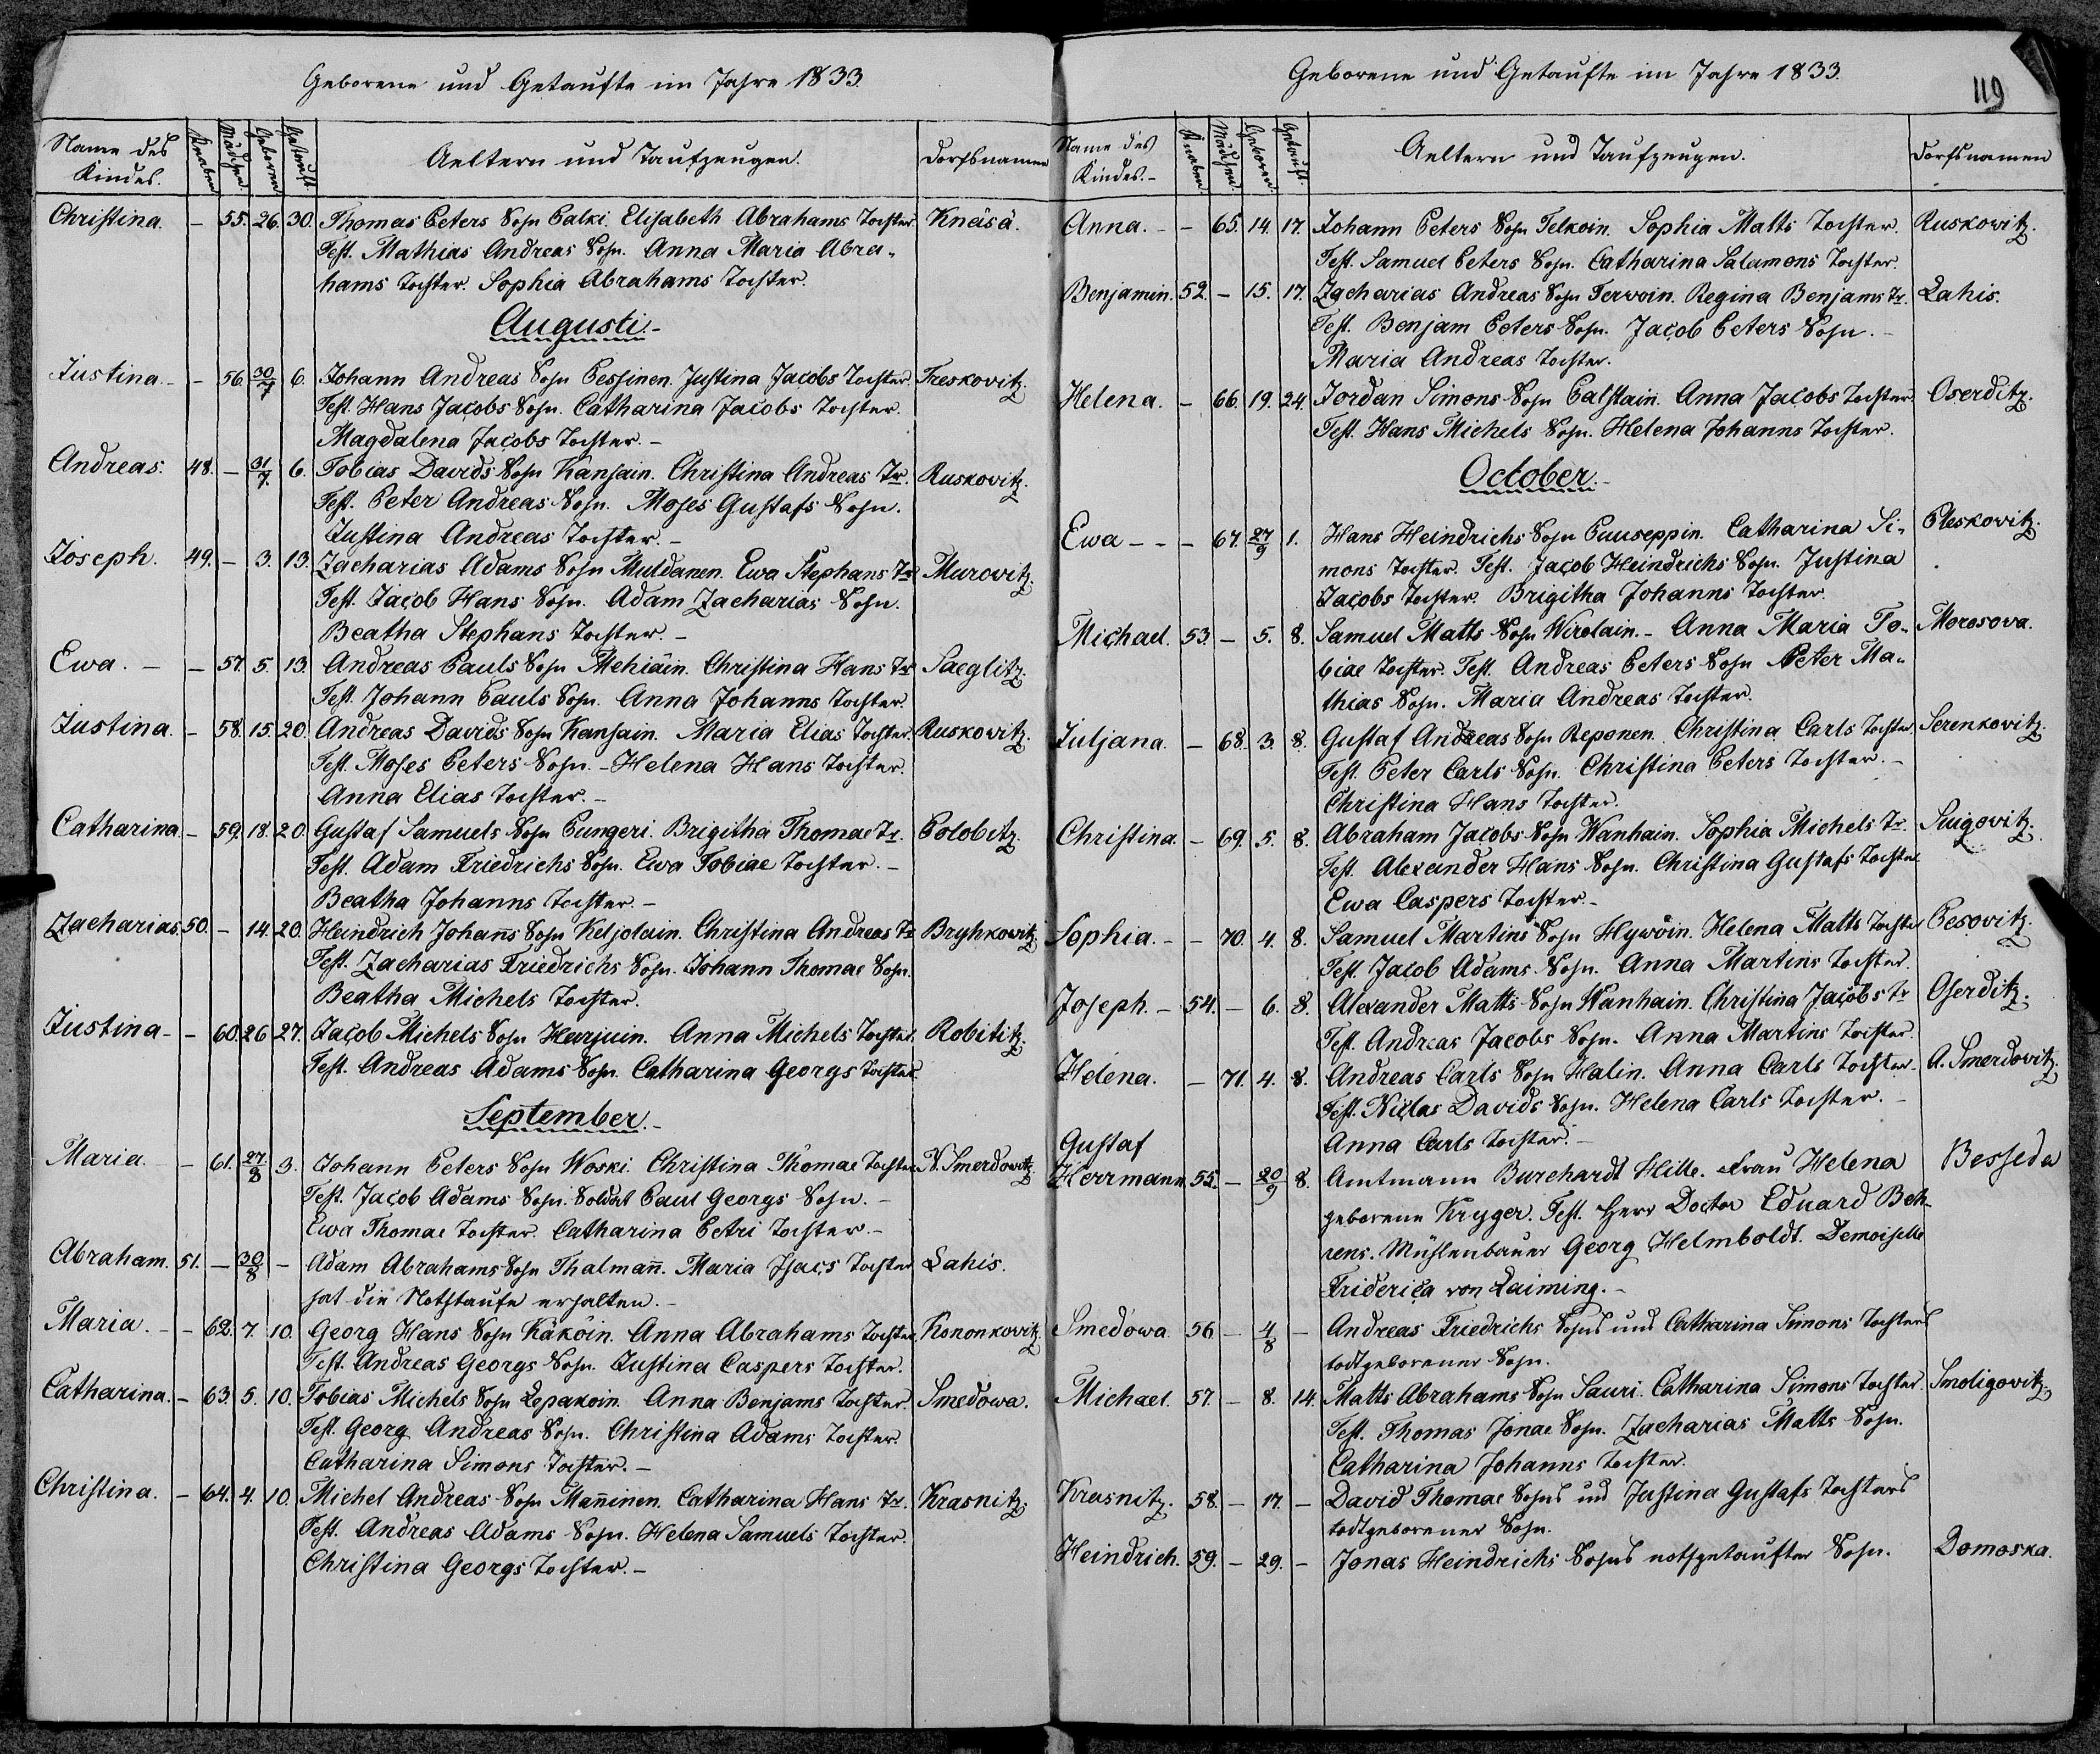 Geborene und Getaufte im Jahre 1833.
Name des Kindes. Knaben Mädchen. Geboren Getauft. Aeltern und Taufzeugen. Dorfsnamen
Christina. – 55. 26. 30. Thomas Peters Sohn Palki. Elisabeth Abrahams Tochter. Knäsä.
Test. Mathias Andreas Sohn. Anna Maria Abra-
hams Tochter. Sophia Abrahams Tochter.
Augusti.–
Justina.– – 56. 30/7 6. Johann Andreas Sohn Pessinen. Justina Jacobs Tochter. Treskovitz.
Test. Hans Jacobs Sohn. Catharina Jacobs Tochter.
Magdalena Jacobs Tochter.–
Andreas. 48. – 31/7. 6. Tobias Davids Sohn Kansain. Christina Andreas Tr. Ruskovitz.
Test. Peter Andreas Sohn. Moses Gustafs Sohn.
Justina Andreas Tochter.–
Joseph. 49. – 3. 13. Zacharias Adams Sohn Muldanen. Ewa Stephans Tr. Murovitz.
Test. Jacob Hans Sohn. Adam Zacharias Sohn.
Beatha Stephans Tochter.–
Ewa. – – 57. 5. 13. Andreas Pauls Sohn Mehiäin. Christina Hans Tr. Saeglitz.
Test. Johann Pauls Sohn. Anna Johanns Tochter.
Justina. – 58. 15. 20. Andreas Davids Sohn Kansain. Maria Elias Tochter. Ruskowitz.
Test. Moses Peters Sohn.– Helena Hans Tochter.
Anna Elias Tochter.–
Catharina. – 59. 18. 20. Gustaf Samuels Sohn Pungeri. Brigitha Thomae Tr. Polobitz.
Test. Adam Friedrichs Sohn. Ewa Tobiae Tochter.–
Beatha Johanns Tochter.–
Zacharias. 50. – 14. 20. Heindrich Johans Sohn Keljolain. Christina Andreas Tr. Bryhkowitz.
Test. Zacharias Friedrichs Sohn. Johann Thomae Sohn.
Beatha Michels Tochter.
Justina– – 60. 26 27. Jacob Michels Sohn Harjuin. Anna Michels Tochter. Robititz.
Test. Andreas Adams Sohn. Catharina Georgs Tochter.
September.–
Maria. – 61. 27/8 3. Johann Peters Sohn Woski. Christina Thomae Tochter. N. Smerdowitz.
Test. Jacob Adams Sohn. Soldat Paul Georgs Sohn.–
Ewa Thomae Tochter. Catharina Petri Tochter.–
Abraham. 51. – 30/8 – Adam Abrahams Sohn Thalmañ. Maria Isacs Tochter Lahis.
hat die Nothtaufe erhalten.–
Maria.– – 62. 7. 10. Georg Hans Sohn Käköin. Anna Abrahams Tochter. Kononkovitz.
Test. Andreas Georgs Sohn. Justina Caspers Tochter.
Catharina. – 63. 5. 10. Tobias Michels Sohn Lepakoin. Anna Benjams Tochter. Smedowa.
Test. Georg Andreas Sohn. Christina Adams Tochter.
Catharina Simons Tochter.–
Christina. – 64. 4. 10. Michel Andreas Sohn Mañinen. Catharina Hans Tr. Krasnitz.
Test. Andreas Adams Sohn. Helena Samuels Tochter.
Christina Georgs Tochter.–
Geborene und Getaufte im Jahre 1833.
119
Name des Kindes.– Knaben Mädchen. Geboren. Getauft. Aeltern und Taufzeugen. Dorfsnamen
Anna.– – 65. 14. 17. Johann Peters Sohn Telkoin. Sophia Matts Tochter. Ruskowitz.
Test. Samuel Peters Sohn. Catharina Salamons Tochter.
Benjamin. 52. – 15. 17. Zacharias Andreas Sohn Terwoin. Regina Benjams Tr. Lahis.
Test. Benjam Peters Sohn. Jacob Peters Sohn.–
Maria Andreas Tochter.
Helena. – 66. 19. 24. Jordan Simons Sohn Palstain. Anna Jacobs Tochter. Oserditz.
Test. Hans Michels Sohn. Helena Johanns Tochter.
October.–
Ewa – – – 67. 27/9 1. Hans Heindrichs Sohn Puuseppin. Catharina Si- Pleskovitz.
mons Tochter. Test. Jacob Heindrichs Sohn. Justina
Jacobs Tochter. Brigitha Johanns Tochter.
Michael. 53. – 5. 8. Samuel Matts Sohn Wirolain.– Anna Maria To- Morosova.
biae Tochter. Test. Andreas Peters Sohn Peter Ma-
thias Sohn. Maria Andreas Tochter.
Juljana. – 68. 3. 8. Gustaf Andreas Sohn Reponen. Christina Carls Tochter. Serenkovitz.
Test. Peter Carls Sohn. Christina Peters Tochter.–
Christina Hans Tochter.
Christina. – 69. 5. 8. Abraham Jacobs Sohn Wanhain. Sophia Michels Tr. Suigovitz.
Test. Alexander Hans Sohn. Christina Gustafs Tochter
Ewa Caspers Tochter.–
Sophia.– – 70. 4. 8. Samuel Martins Sohn Hywöin. Helena Matts Tochter Pesovitz.
Test. Jacob Adams Sohn. Anna Martins Tochter.
Joseph.– 54. – 6. 8. Alexander Matts Sohn Wanhain. Christina Jacobs Tr Oserditz.
Test. Andreas Jacobs Sohn. Anna Martins Tochter.
Helena. – 71. 4. 8. Andreas Carls Sohn Halin. Anna Carls Tochter. A. Smerdovitz.
Test. Niclas Davids Sohn. Helena Carls Tochter.–
Anna Carls Tochter.–
Gustaf
Herrmann. 55. – 20/9 8. Amtmann Burchardt Hille. Frau Helena Besseda
geborene Kryger. Test. Herr Doctor Eduard Beh-
rens. Mühlenbauer Georg Helmboldt. Demoiselle
Friderica von Laiming.–
Smedowa. 56 – 4/8 – Andreas Friedrichs Sohns und Catharina Simons Tochters
todtgeborener Sohn.
Michael. 57. – 8. 14. Matts Abrahams Sohn Sauri. Catharina Simons Tochter. Smoligovitz.
Test. Thomas Jonae Sohn. Zacharias Matts Sohn.
Catharina Johanns Tochter.
Krasnitz. 58. – 17. – David Thomae Sohns und Justina Gustafs Tochters
todtgeborener Sohn.
Heindrich. 59. – 29. – Jonas Heindrichs Sohns nothgetaufter Sohn. Domoska.